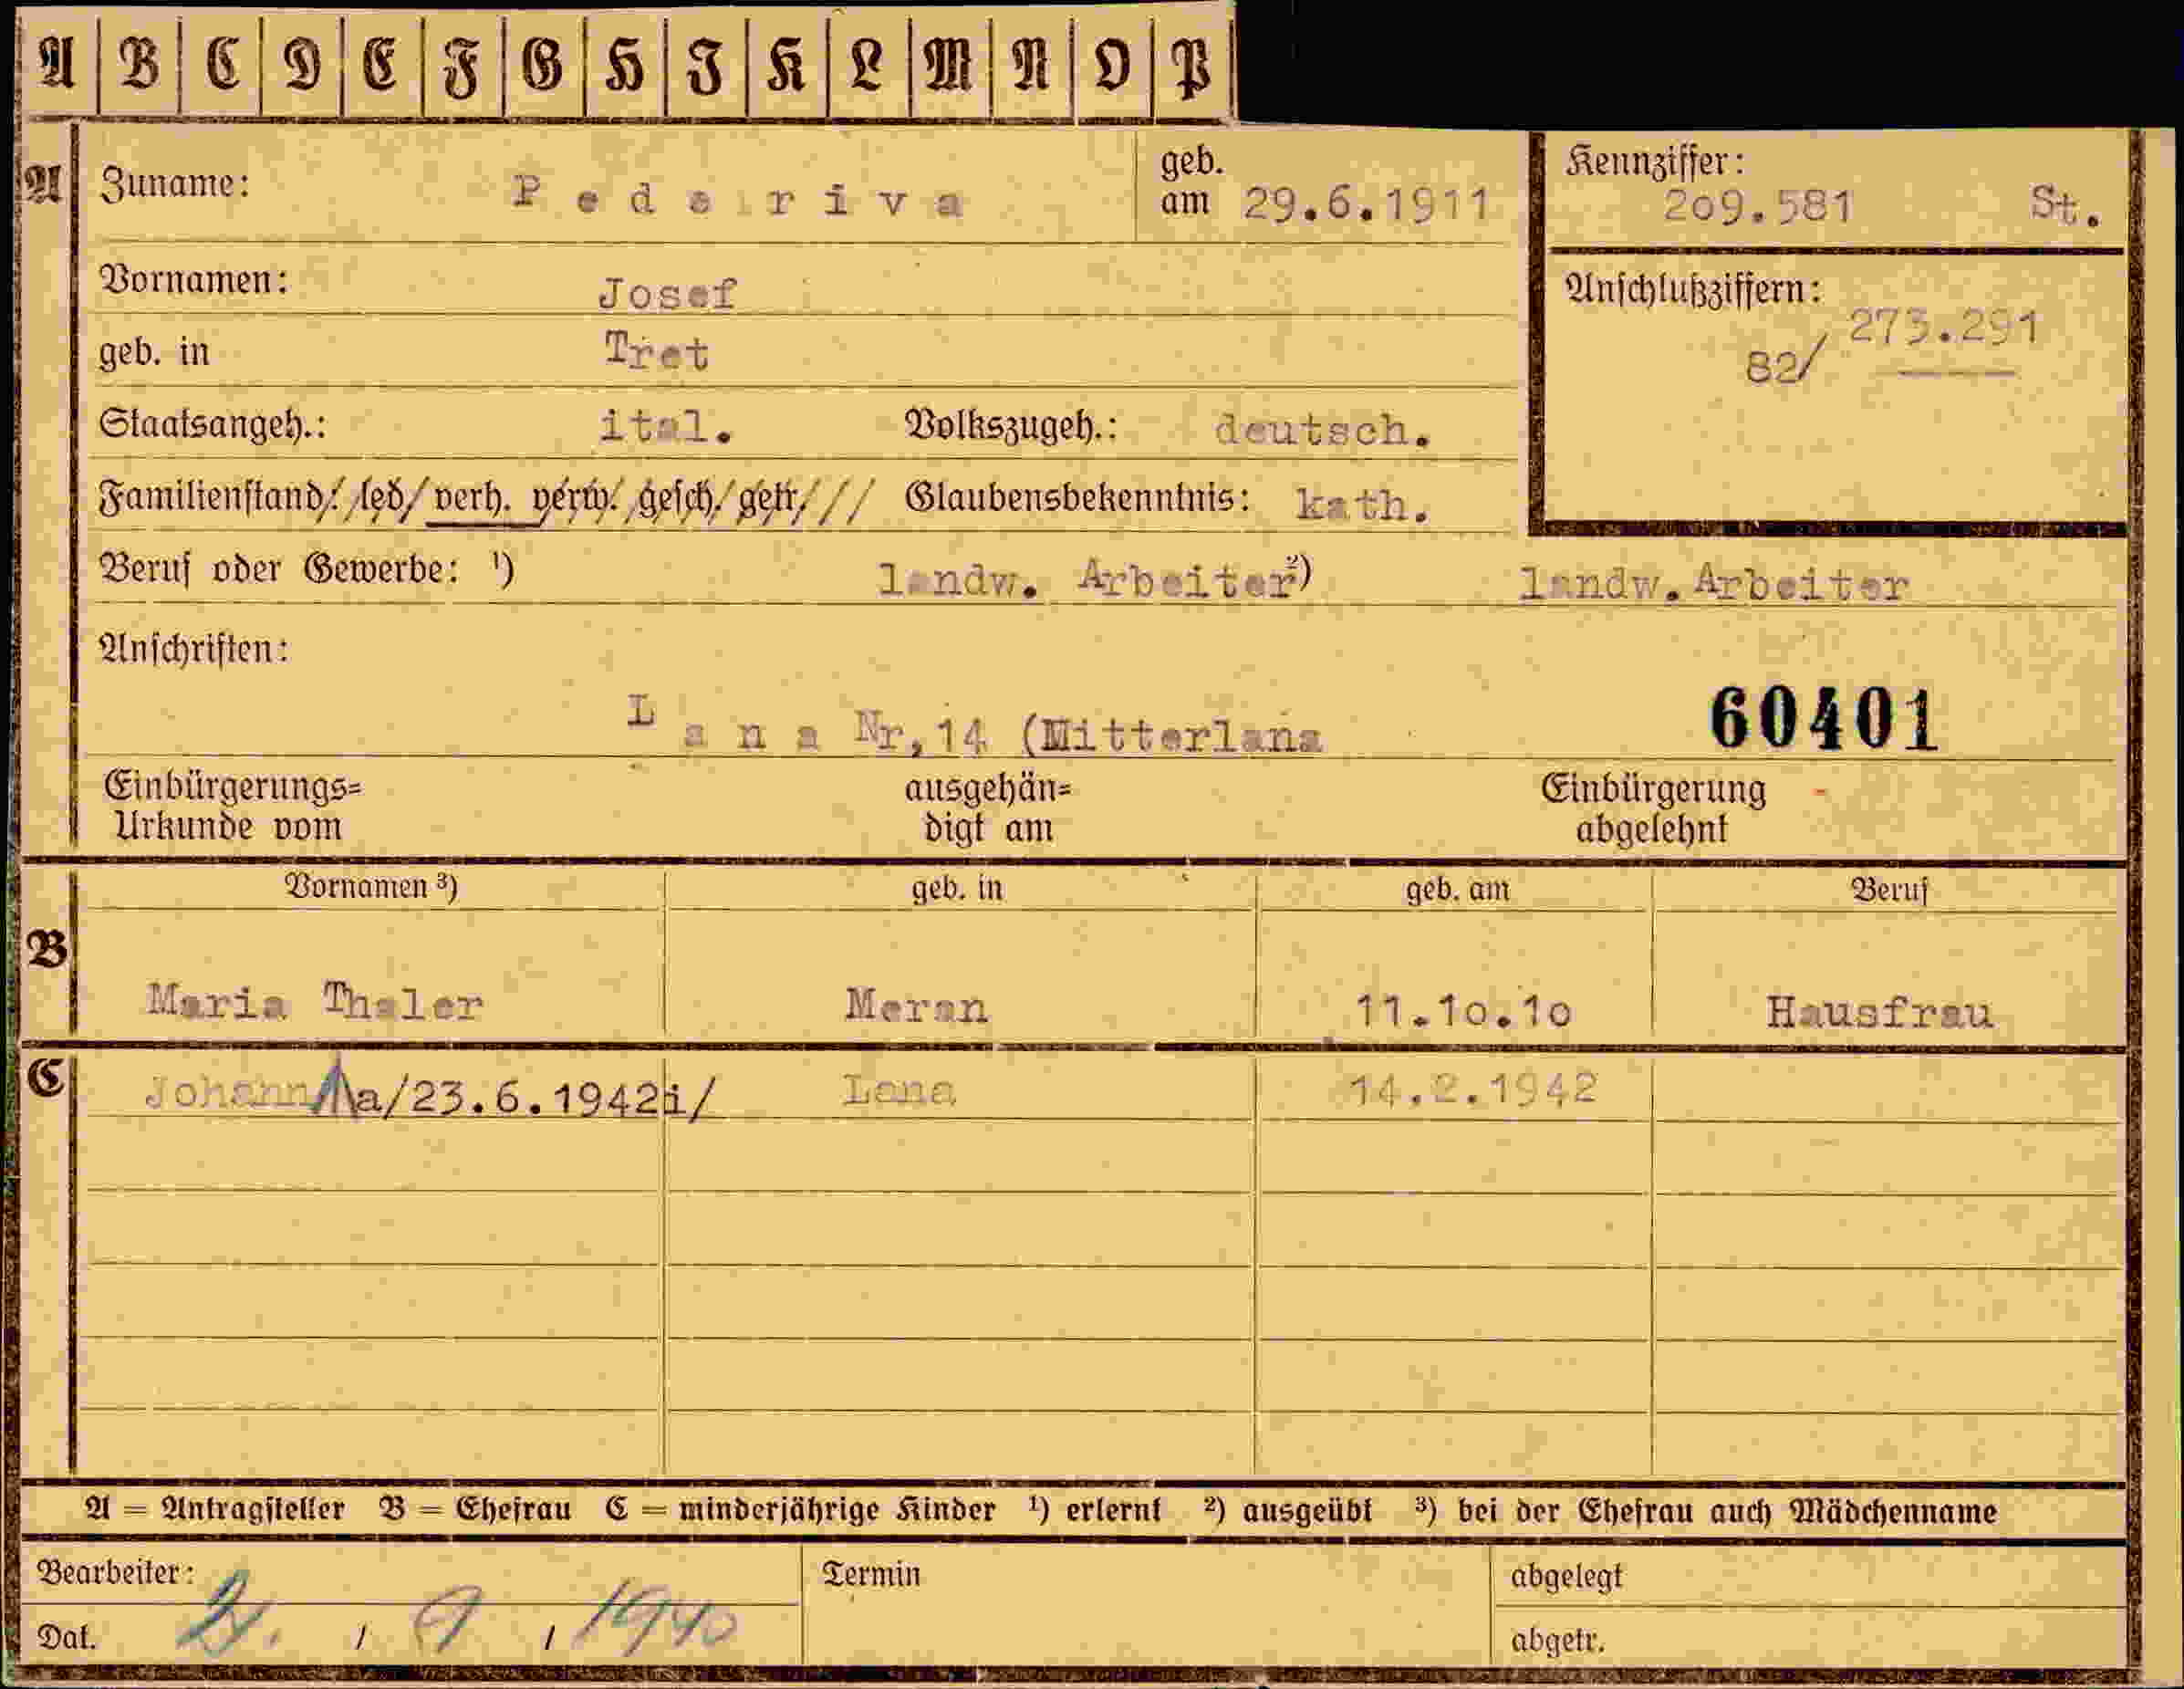 A B C D E F G H I K L M N O P
A Zuname: Pederiva geb. am 29.6.1911 Kennziffer: 2o9.581 St.
Vornamen: Josef Anschlußziffern:
82/ 273.291
geb. in Tret
Staatsangeh.: ital. Volkszugeh.: deutsch.
Familienstand: led. verh. verw. gesch. getr. Glaubensbekenntnis: kath.
Beruf oder Gewerbe: ¹) landw. Arbeiter ²) landw. Arbeiter
Anschriften:
Lana Nr,14 (Mitterlana 60401
Einbürgerungs= ausgehän= Einbürgerung
Urkunde vom digt am abgelehnt
Vornamen ³) geb. in geb. am Beruf
B
Maria Thaler Meran 11.1o.1o Hausfrau
C Johann a/23.6.1942i/ Lana 14.2.1942
A = Antragsteller B = Ehefrau C = minderjährige Kinder ¹) erlernt ²) ausgeübt ³) bei der Ehefrau auch Mädchenname
Bearbeiter: Termin abgelegt
Dat. 2. / 9 / 1940 abgetr.